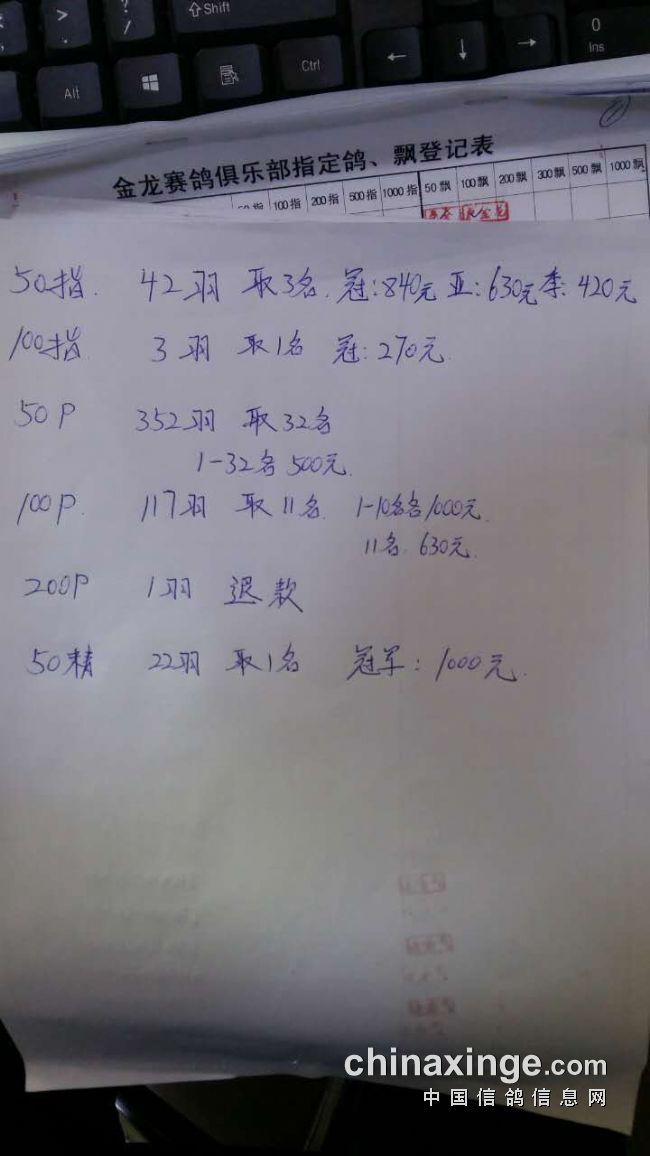 Shift
Alt
Ctrl
0
Ins
金龙赛鸽俱乐部指定鸽、飘登记表
100指 200指 500指 1000指 50飘 100飘 200飘 300飘 500飘 1000飘
50指. 42羽 取3名. 冠:840元 亚:630元 季:420元
100指 3羽 取1名 冠:270元.
50P 352羽 取32名
1-32名 500元.
100P. 117羽 取11名. 1-10名各1000元.
11名. 630元.
200P 1羽 退款
50精 22羽 取1名 冠军:1000元.
chinaxinge.com
中国信鸽信息网